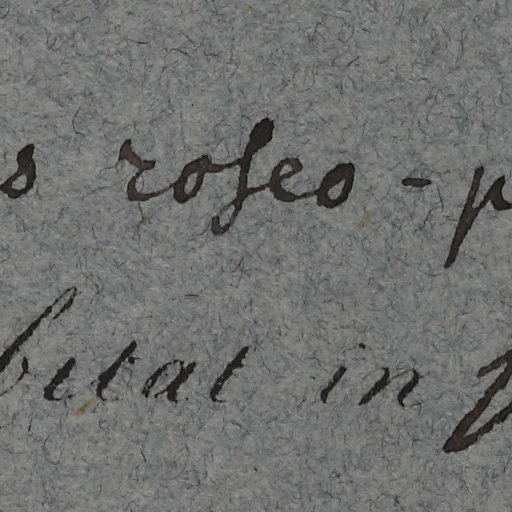 s roseo-p
bitat in p